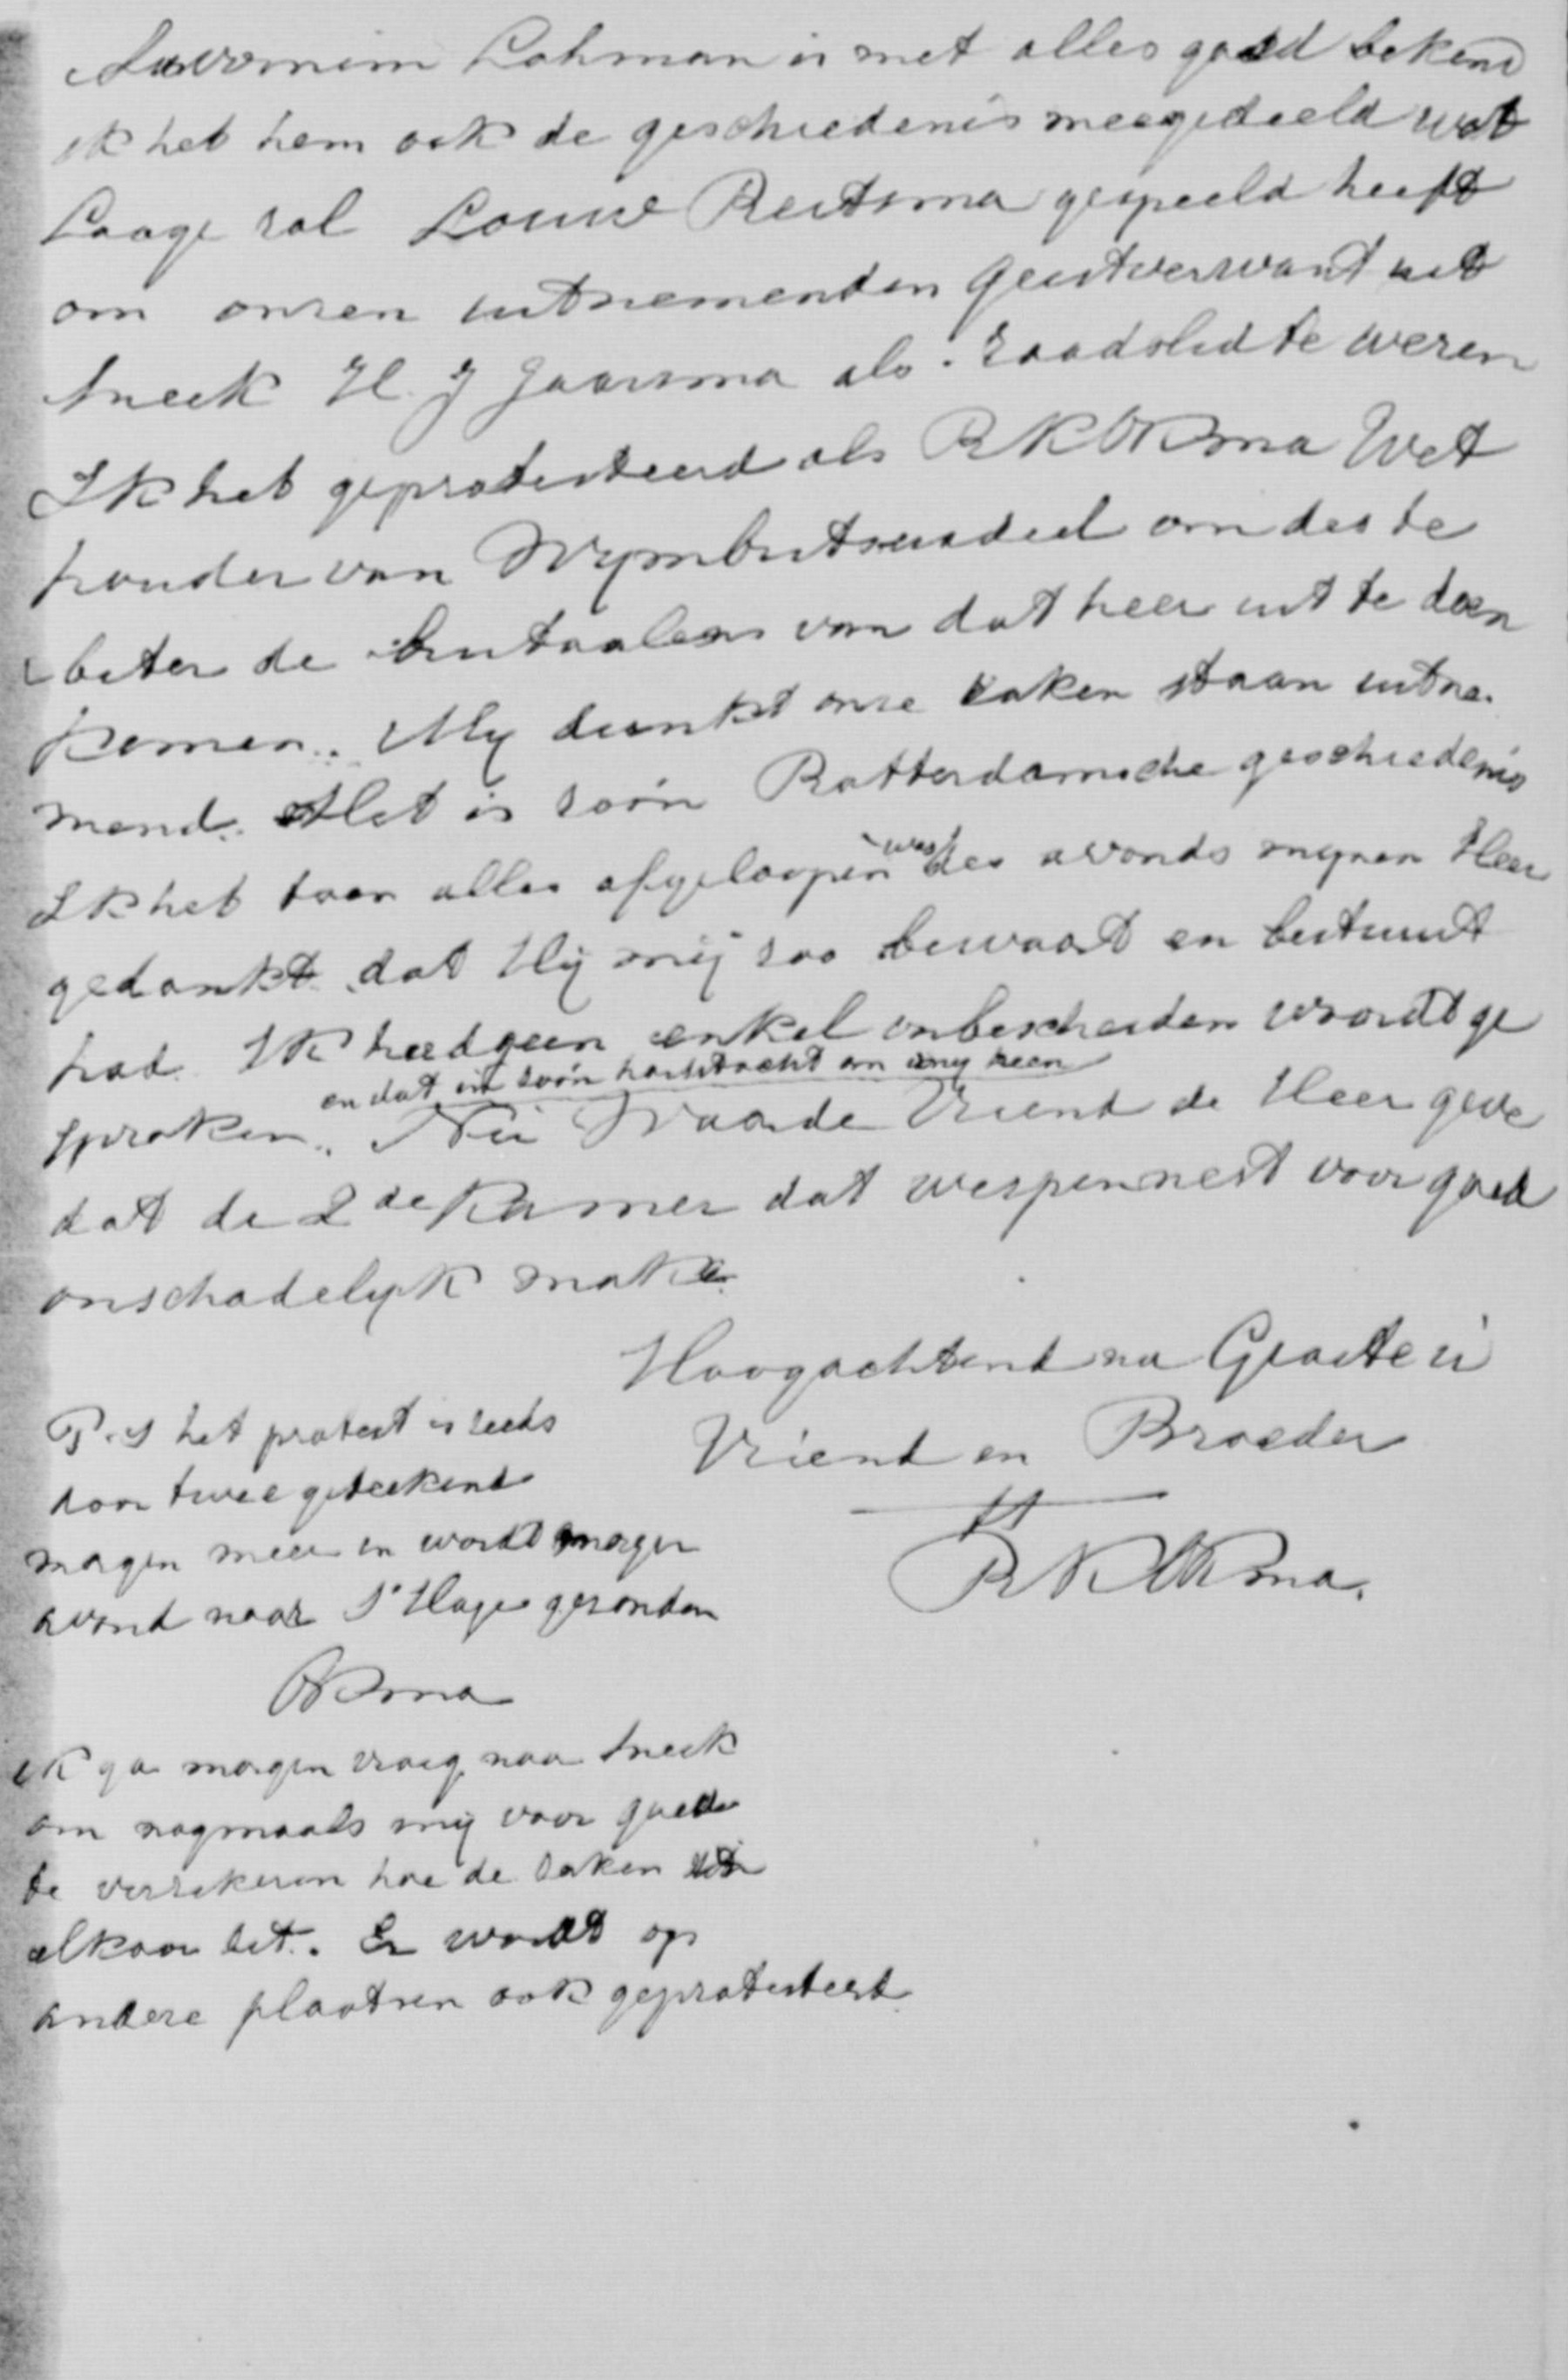 Savornim Lohman is met alles goed bekend
ik heb hem ook de geschiedenis meegedeeld wat
Laage rol Louwe Reitsma gespeeld heeft
om onzen uitnemenden Geestverwant uit
Sneek H. J Jaarsma als raadslid te weren
Ik heb geprotesteerd als R K Okma Wet
houder van Wymbritseradeel om des te
beter de brutaalens van dat heer uit te doen
komen. My dunkt onze zaken staan uitne.
mend. Het is zoon Rotterdamsche geschiedenis
Ik heb toen alles afgeloopen was des avonds mynen Heer
gedankt dat Hij mij zoo bewaart en bestuurt
had. Ik had geen enkel onbescheiden woordt ge
en dat in zoon hachtacht om my heen
sproken. Nu Waarde Vriend de Heer geve
dat de 2de Kamer dat wespennest voor goed
onschadelyk make
Hoogachtend na Groete ú
Vriend en Broeder
R K Okma.
P.S het protest is reeds
door twee geteekend
morgen meer en wordt morgen
avond naar S'Hage gezonden
Okma
ik ga morgen vroeg naar Sneek
om nogmaals mij voor goed
te verzekeren hoe de zaken in
elkaar zit. Er wordt op
andere plaatsen ook geprotesteerd